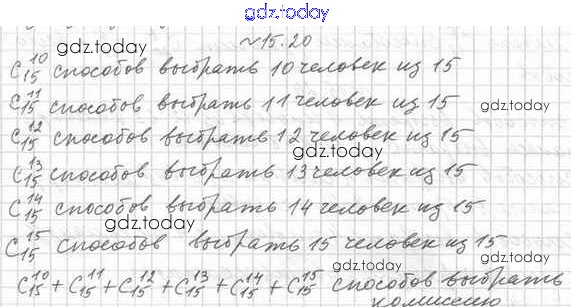 gdz.today
gdz.today
~15.20
C₁₅¹⁰ способов выбрать 10 человек из 15
C₁₅¹¹ способов выбрать 11 человек из 15
gdz.today
C₁₅¹² способов выбрать 12 человек из 15
gdz.today
C₁₅¹³ способов выбрать 13 человек из 15
C₁₅¹⁴ способов выбрать 14 человек из 15
gdz.today
C₁₅¹⁵ способов выбрать 15 человек из 15
gdz.today
C₁₅¹⁰ + C₁₅¹¹ + C₁₅¹² + C₁₅¹³ + C₁₅¹⁴ + C₁₅¹⁵ способов выбрать
комиссию